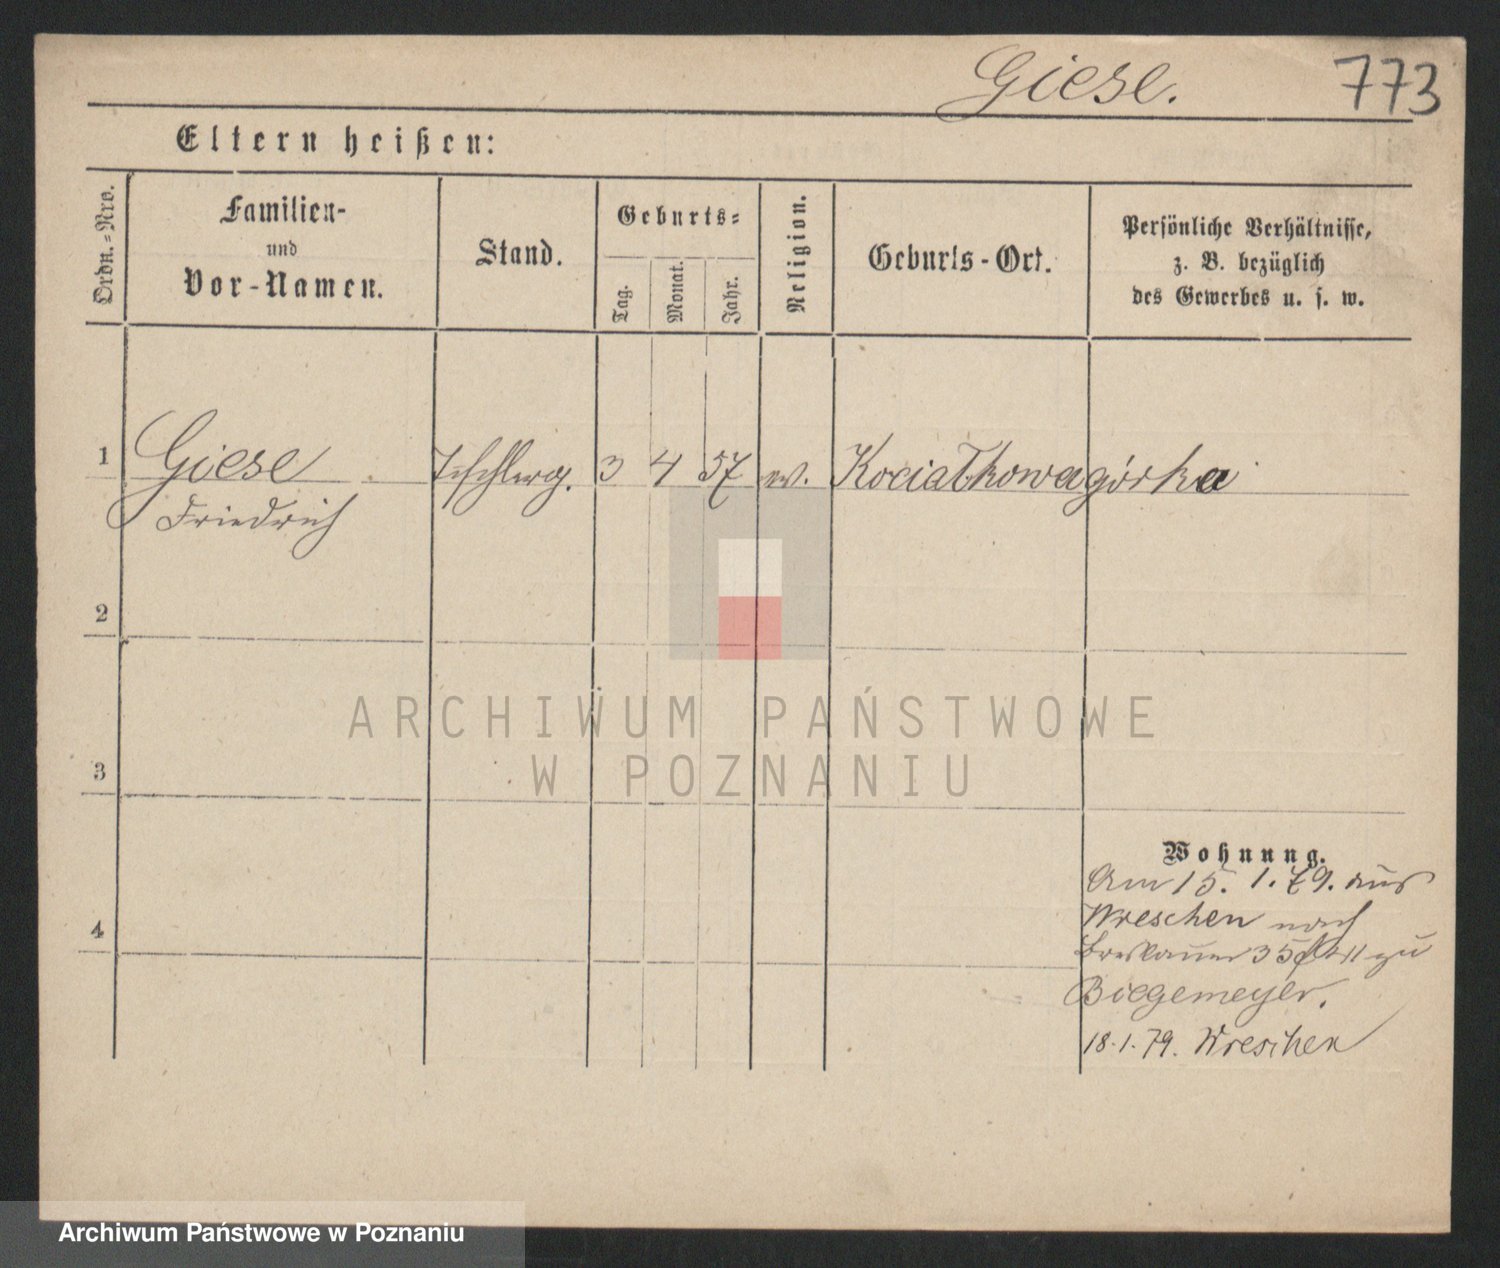 Giese. 773
Eltern heißen:
Ordn.=Nro.
Familien-
und
Vor-Namen.
Stand.
Geburts=
Tag.
Monat.
Jahr.
Religion.
Geburts-Ort.
Persönliche Verhältnisse,
z. B. bezüglich
des Gewerbes u. s. w.
1 Giese Tischlerg. 3 4 57 ev. Kociałkowagórka
Friedrich
2
3
4
ARCHIWUM PAŃSTWOWE
W POZNANIU
Wohnung.
Am 15. 1. 79. aus
Wreschen nach
Breslauer 35 zu
Biegemeyer.
18.1.79. Wreschen
Archiwum Państwowe w Poznaniu